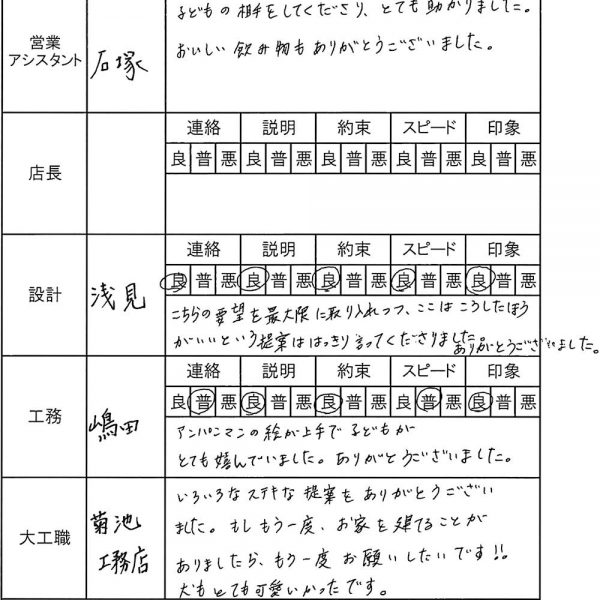 子どもの相手をしてくださり、とても助かりました。
営業
アシスタント
石塚
おいしい飲み物もありがとうございました。
連絡 説明 約束 スピード 印象
良 普 悪 良 普 悪 良 普 悪 良 普 悪 良 普 悪
店長
連絡 説明 約束 スピード 印象
良 普 悪 良 普 悪 良 普 悪 良 普 悪 良 普 悪
設計
浅見
こちらの要望を最大限に取り入れつつ、ここはこうしたほう
がいいという提案ははっきり言ってくださりました。
ありがとうございました。
連絡 説明 約束 スピード 印象
良 普 悪 良 普 悪 良 普 悪 良 普 悪 良 普 悪
工務
嶋田
アンパンマンの絵が上手で子どもが
とても嬉んでいました。ありがとうございました。
大工職
菊池
工務店
いろいろなステキな提案をありがとうござい
ました。もしもう一度、お家を建てることが
ありましたら、もう一度お願いしたいです!!
犬もとても可愛いかったです。